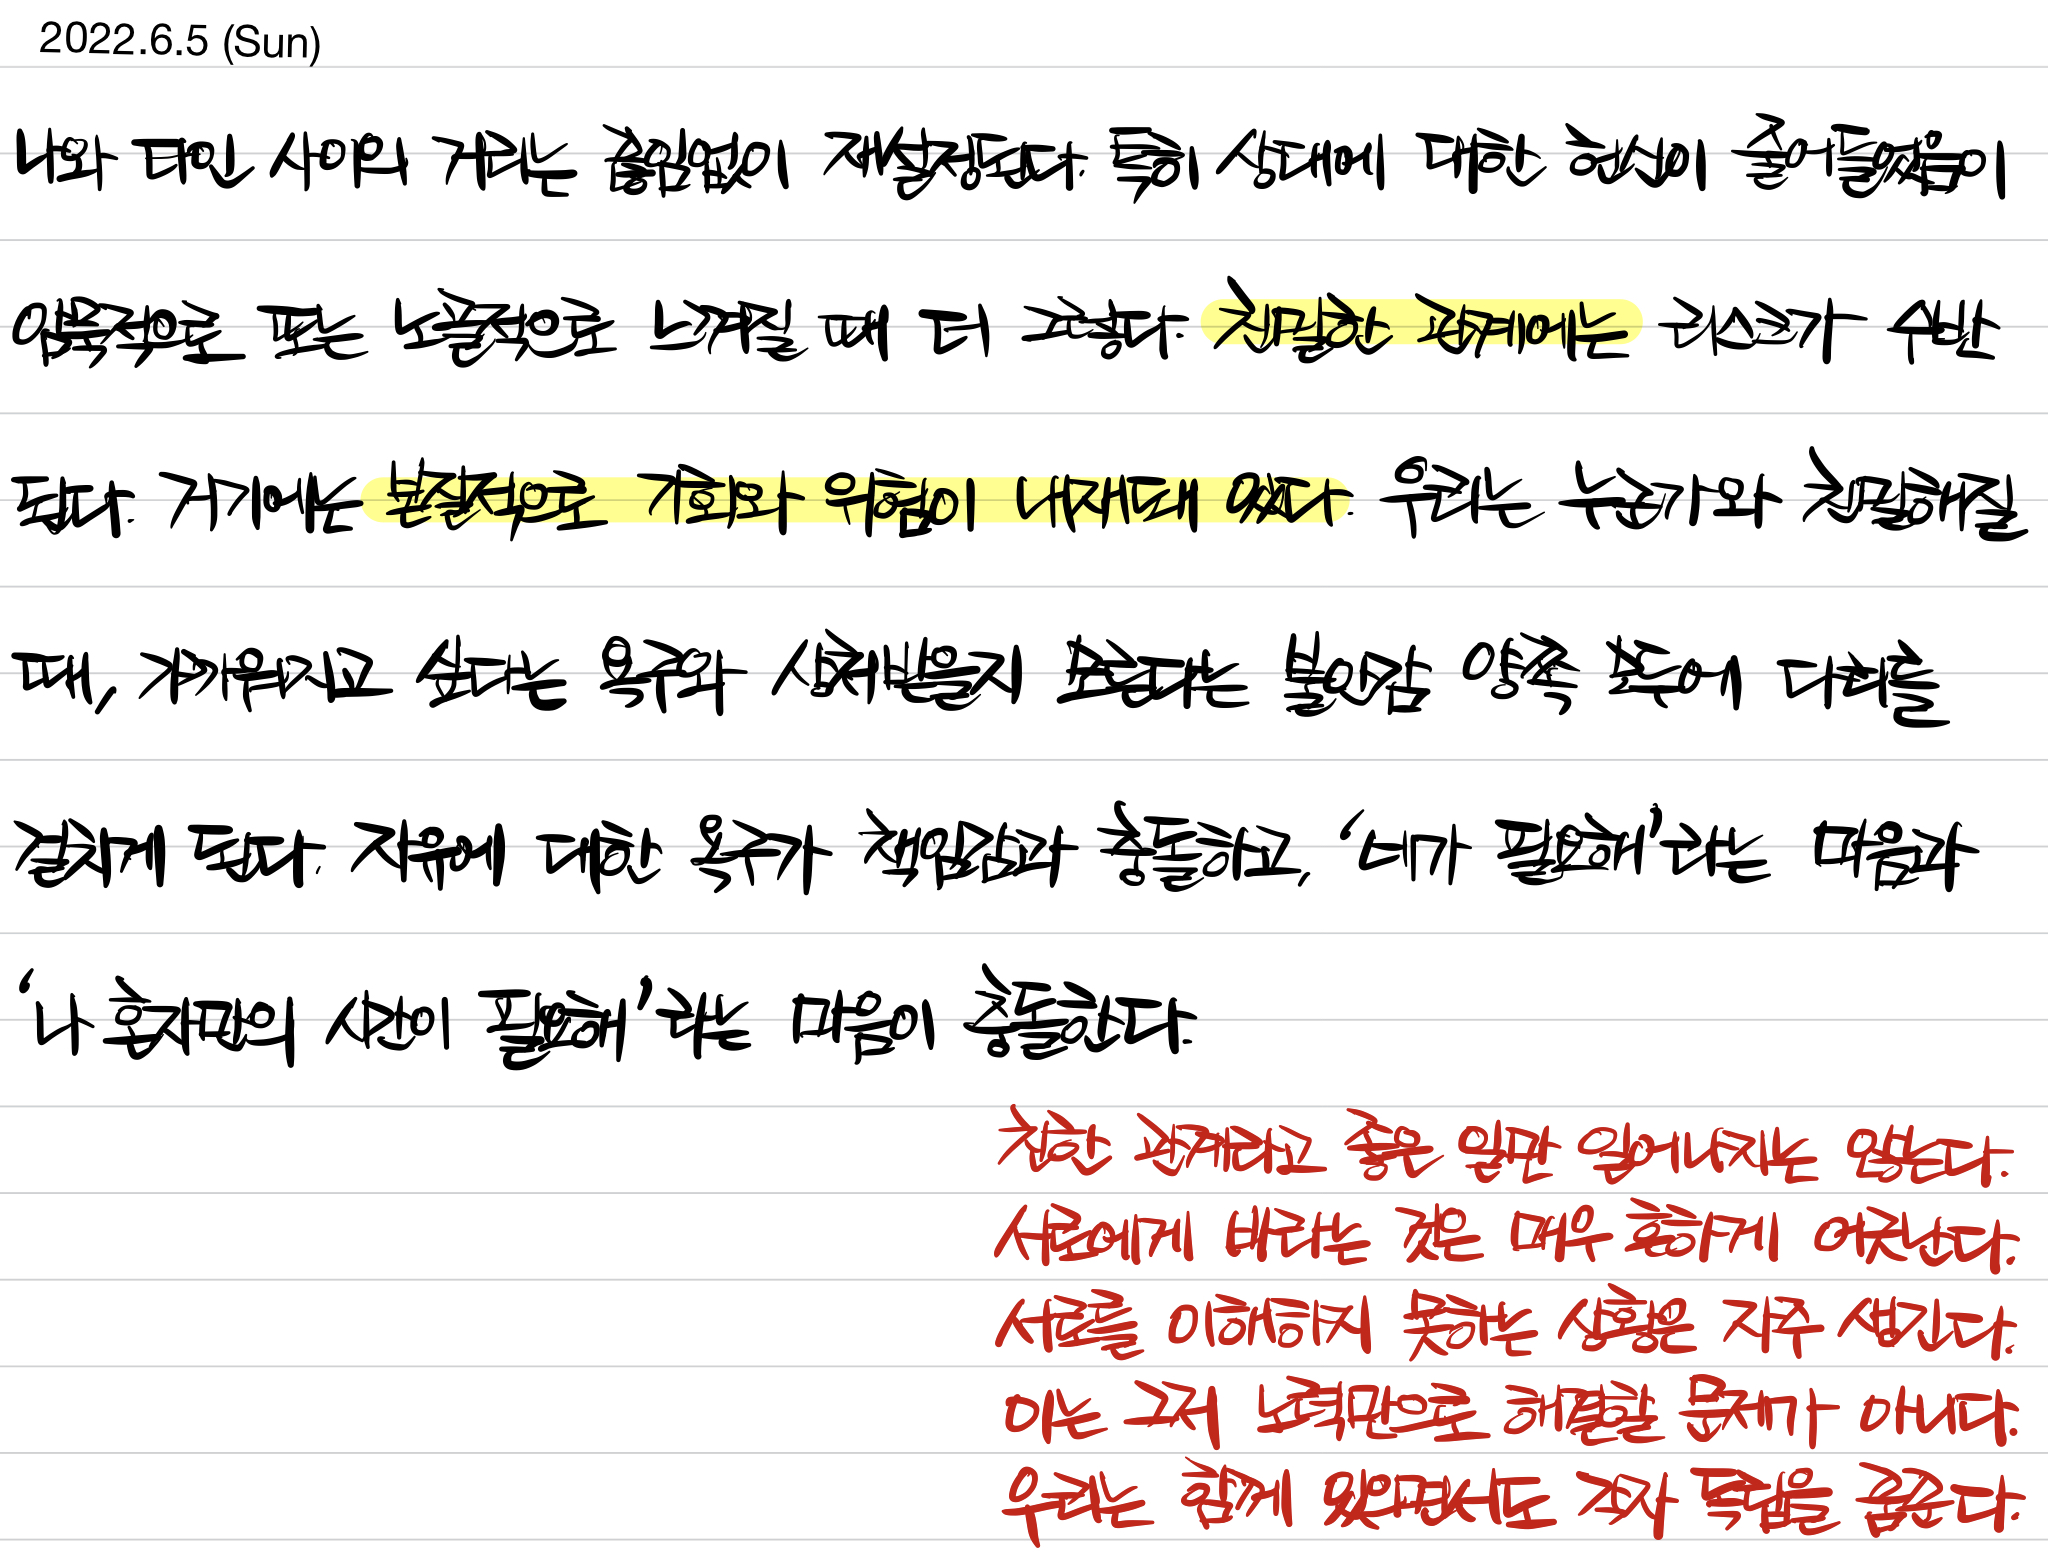 2022.6.5 (Sun)
나와 타인 사이의 거리는 끊임없이 재설정된다. 특히 상대에 대한 헌신이 줄어들었음이
암묵적으로 또는 노골적으로 느껴질 때 더 그렇다. 친밀한 관계에는 리스크가 수반
된다. 거기에는 본질적으로 기회와 위험이 내재돼 있다. 우리는 누군가와 친밀해질
때, 가까워지고 싶다는 욕구와 상처받을지 모른다는 불안감 양쪽 모두에 다리를
걸치게 된다. 자유에 대한 욕구가 책임감과 충돌하고, ‘네가 필요해’라는 마음과
‘나 혼자만의 시간이 필요해’라는 마음이 충돌한다.
친한 관계라고 좋은 일만 일어나지는 않는다.
서로에게 바라는 것은 매우 흔하게 어긋난다.
서로를 이해하지 못하는 상황은 자주 생긴다.
이는 그저 노력만으로 해결할 문제가 아니다.
우리는 함께 있으면서도 각자 독립을 꿈꾼다.